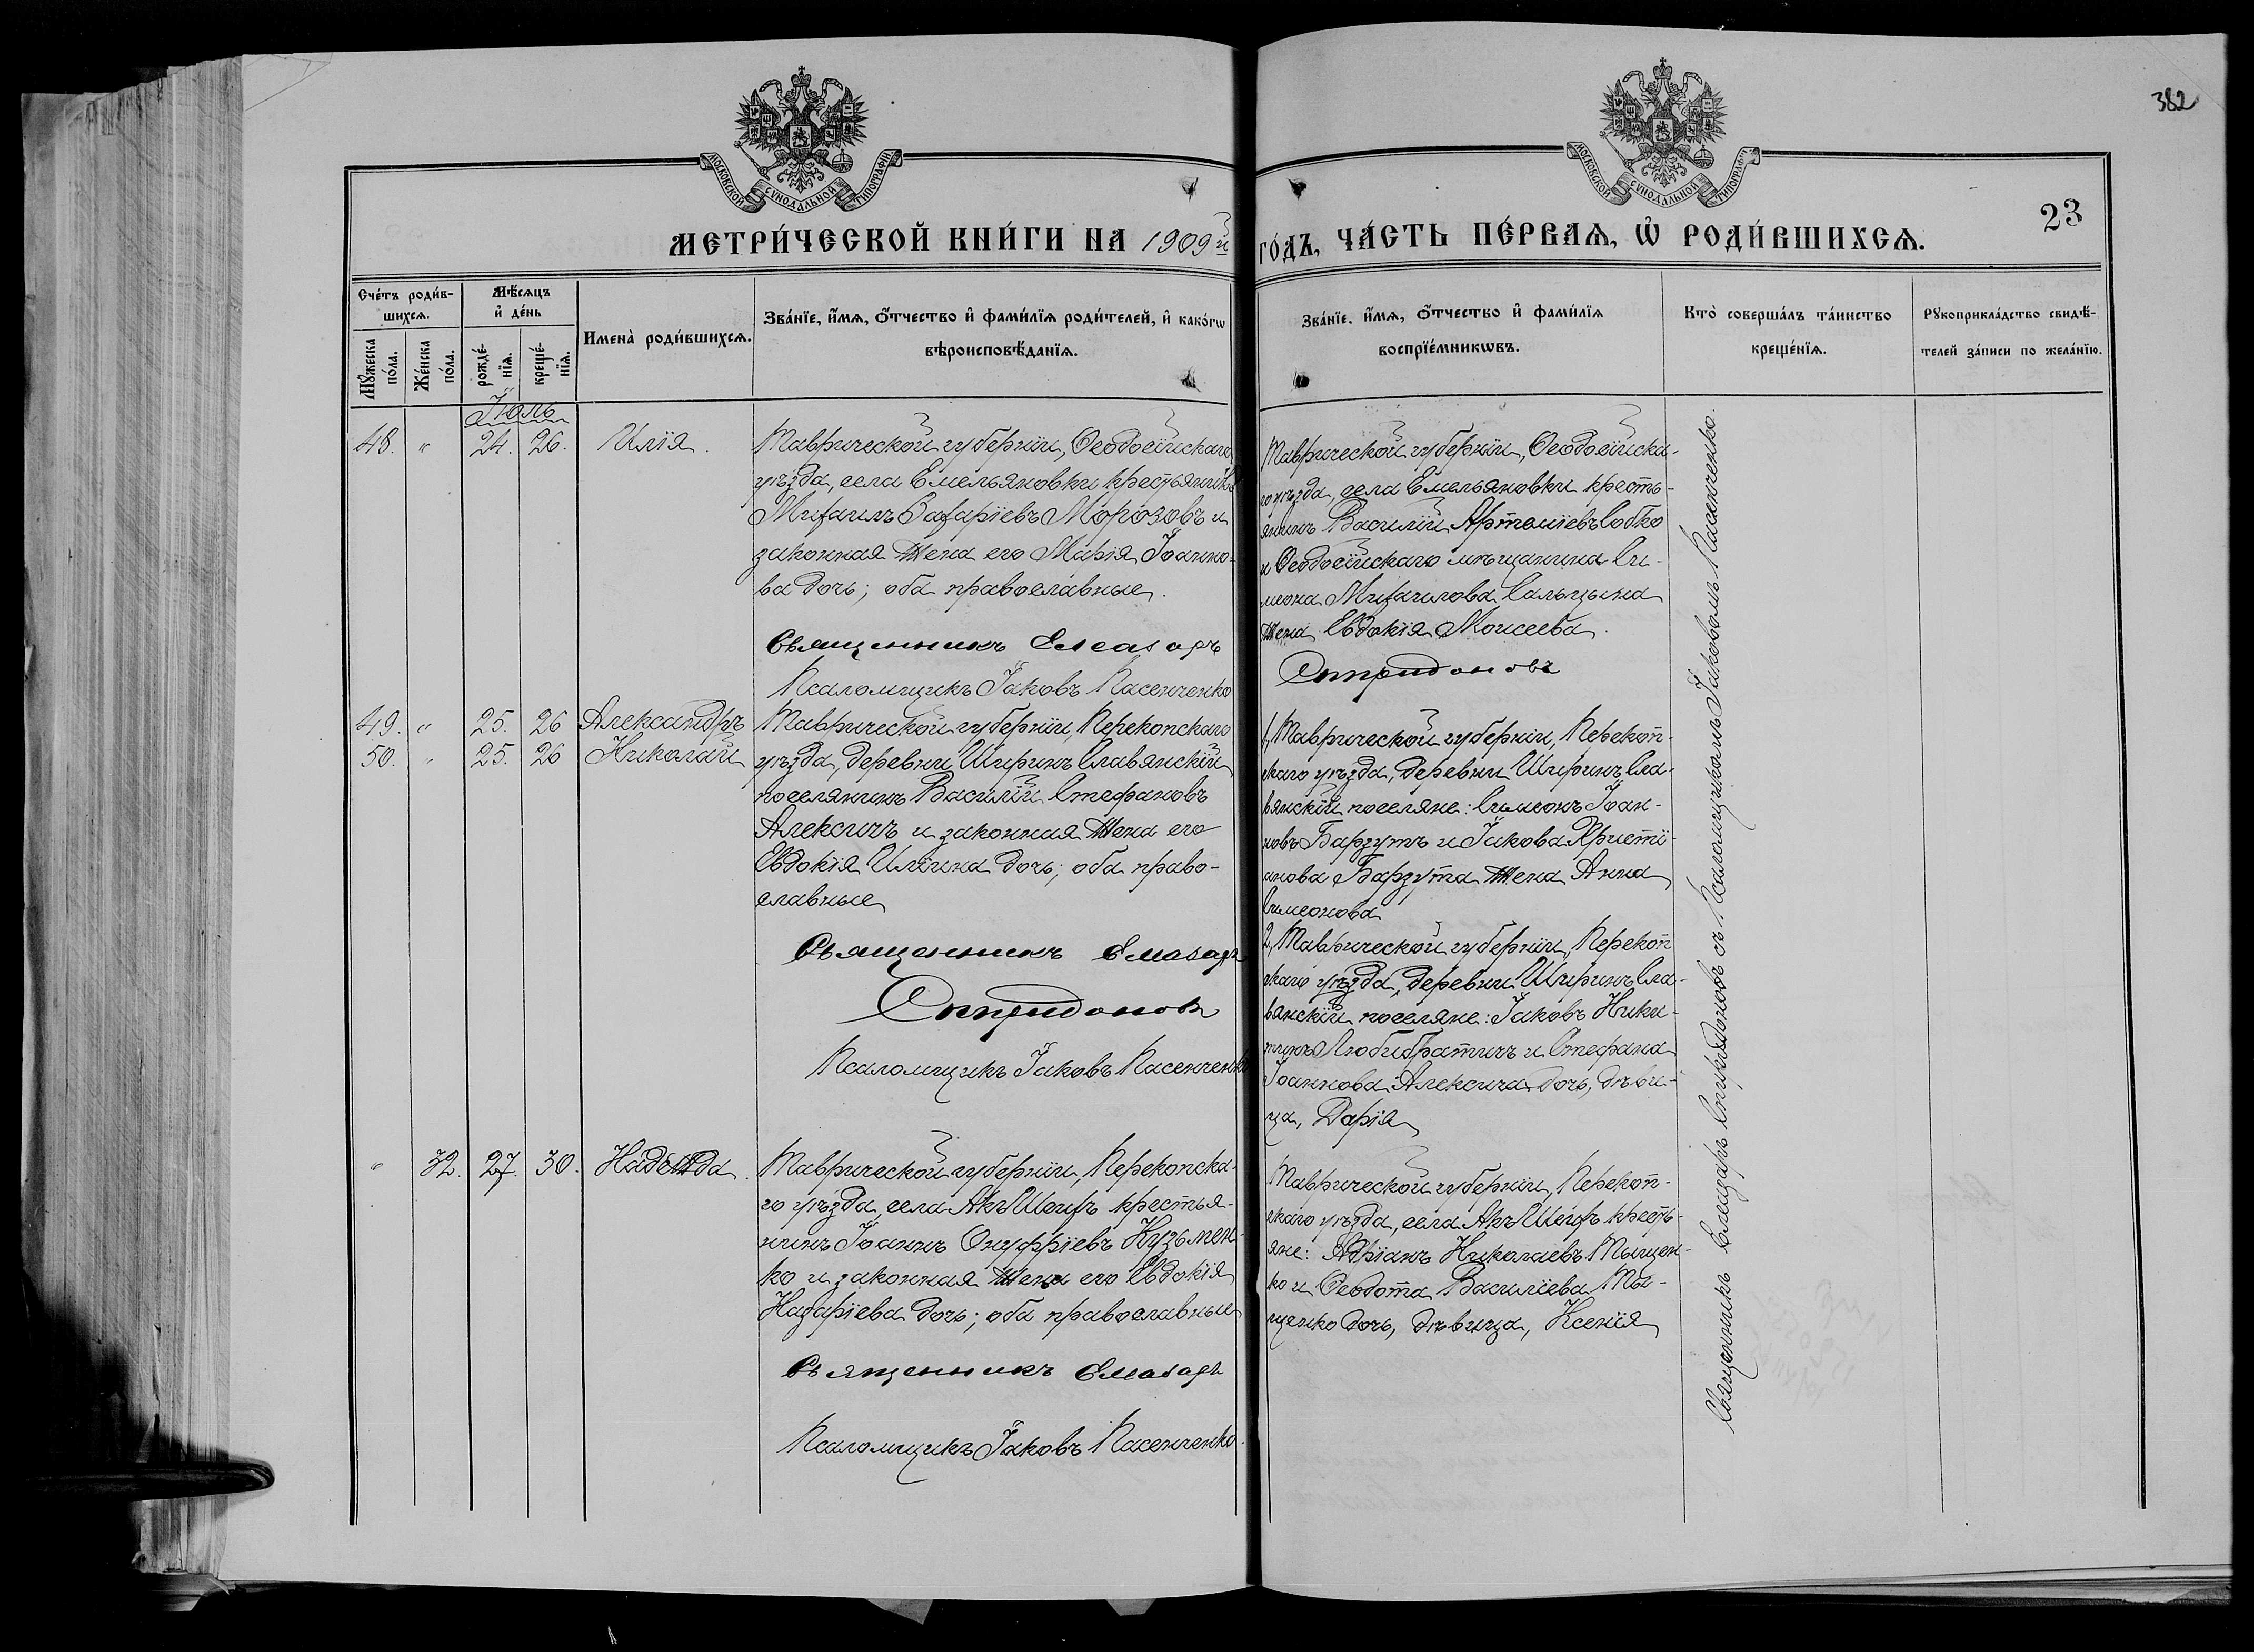 382
МОСКОВСКОЙ СѴНОДАЛЬНОЙ ТИПОГРАФІИ
МОСКОВСКОЙ СѴНОДАЛЬНОЙ ТИПОГРАФІИ
23
МЕТРИ́ЧЕСКОЙ КНИ́ГИ НА 1909й
ГО́ДЪ, ЧА́СТЬ ПЕ́РВАѦ, Ѡ РОДИ́ВШИХСѦ.
Сче́тъ роди́в-
шихсѧ.
Мꙋ́жеска по́ла.
Же́нска по́ла.
Мѣ́сѧцъ
и де́нь
рожде́-
нїѧ.
креще́-
нїѧ.
Имена̀ роди́вшихсѧ.
Зва́нїе, и҆́мѧ, ѻ҆́тчество и҆ фами́лїѧ роди́телей, и҆ како́гѡ
вѣроисповѣ́данїѧ.
Зва́нїе, и҆́мѧ, ѻ҆́тчество и҆ фами́лїѧ
воспрїе́мникѡвъ.
Кто̀ соверша́лъ та́инство
креще́нїѧ.
Рꙋкоприкла́дство свидѣ́-
телей за́писи по жела́нїю.
Іюль
48. " 24. 26. Илія.
Таврической губерніи, Ѳеодосійскаго
уѣзда, села Емельяновки крестьянинъ
Михаилъ Захаріевъ Морозовъ и
законная жена его Марія Іоанно-
ва дочь; оба православные.
Священникъ Елеазаръ
Псаломщикъ Іаковъ Пасенченко
Таврической губерніи, Ѳеодосійска-
го уѣзда, села Емельяновки кресть-
янинъ Василій Артеміевъ Собко
и Ѳеодосійскаго мѣщанина Си-
меона Михаилова Сальцына
жена Евдокія Моисеева.
Спиридоновъ
49. " 25. 26 Александръ
50. " 25. 26 Николай
Таврической губерніи, Перекопскаго
уѣзда, деревни Ширинъ Славянскій
поселянинъ Василій Стефановъ
Алексичъ и законная жена его
Евдокія Иліина дочь; оба право-
славные
Священникъ Елеазаръ
Спиридоновъ
Псаломщикъ Іаковъ Пасенченко
1, Таврической губерніи, Перекоп-
скаго уѣзда, деревни Ширинъ Сла-
вянскій поселяне: Симеонъ Іоан-
новъ Барзутъ и Іакова Христі-
анова Барзута жена Анна
Симеонова
2, Таврической губерніи, Перекоп-
скаго уѣзда, деревни Ширинъ Сла-
вянскій поселяне: Іаковъ Ники-
тинъ Любибратичъ и Стефана
Іоаннова Алексича дочь, дѣви-
ца, Дарія
" 32. 27. 30. Надежда.
Таврической губерніи, Перекопска-
го уѣзда, села Акъ Шеихъ крестья-
нинъ Іоаннъ Онуфріевъ Кузьмен-
ко и законная жена его Евдокія
Назаріева дочь; оба православные
Священникъ Елеазаръ
Псаломщикъ Іаковъ Пасенченко.
Таврической губерніи, Перекоп-
скаго уѣзда, села Акъ Шеихъ кресть-
яне: Адріанъ Николаевъ Тыщен-
ко и Ѳеодота Василіева Ты-
щенко дочь, дѣвица, Ксенія
Священникъ Елеазаръ Спиридоновъ съ Псаломщикомъ Іаковомъ Пасенченко.